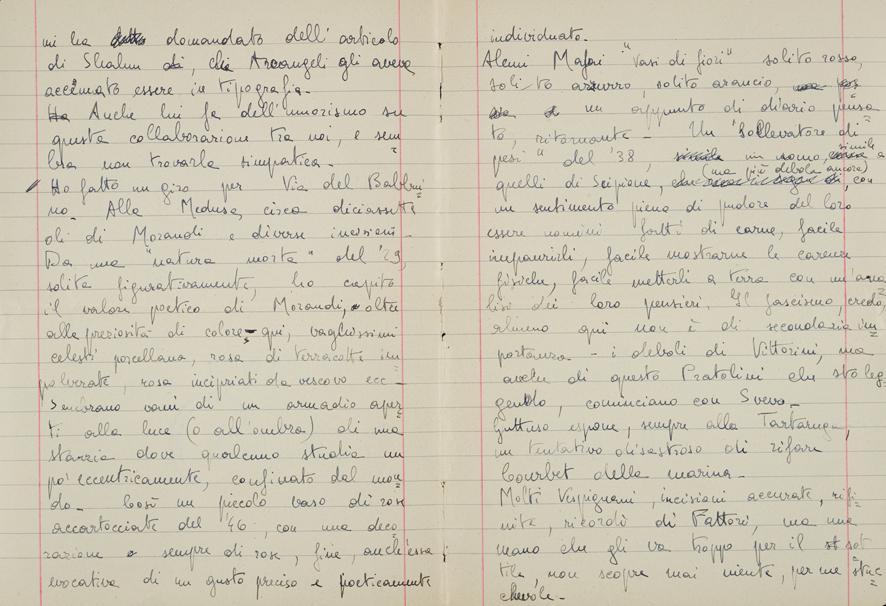 mi ha domandato dell'articolo
di Shahn, che Arcangeli gli aveva
accennato essere in tipografia.
Anche lui fa dell'umorismo su
questa collaborazione tra noi, e sem
bra non trovarla simpatica.
Ho fatto un giro per Via del Babui
no. Alla Medusa, circa diciassette
oli di Morandi e diverse incisioni.
Da una "natura morta" del '29,
solita figurativamente, ho capito
il valore poetico di Morandi, oltre
alla preziosità di colore, qui, vaghissimi
celesti porcellana, rosa di terracotte im
polverate, rosa incipriati da vescovo ecc.
Sembrano vani di un armadio aper
ti alla luce (o all'ombra) di una
stanza dove qualcuno studia un
po' eccentricamente, confinato dal mon
do. Così un piccolo vaso di rose
accartocciate del '46, con una deco
razione sempre di rose, fine, anch'essa
evocativa di un gusto preciso e poeticamente
individuato.
Alcuni Mafai "Vasi di fiori" solito rosso,
solito azzurro, solito arancio,
un appunto di diario pensa
to, ritornante. Un "Sollevatore di
pesi" del '38, in uomo, simile a
quelli di Scipione, (ma più debole ancora), con
un sentimento pieno di pudore del loro
essere uomini fatti di carne, facile
impaurirli, facile mostrarne le carenze
fisiche, facile metterli a terra con un'ana
lisi dei loro pensieri. Il fascismo, credo,
almeno qui non è di secondaria im
portanza - i deboli di Vittorini, ma
anche di questo Pratolini che sto leg
gendo, cominciano con Svevo.
Guttuso espone, sempre alla Tartaruga,
un tentativo disastroso di rifare
Courbet della marina.
Molti Vespignani, incisioni accurate, rifi
nite, ricordi di Fattori, ma una
mano che gli va troppo per il sot
tile, non scopre mai niente, per me stuc
chevole.